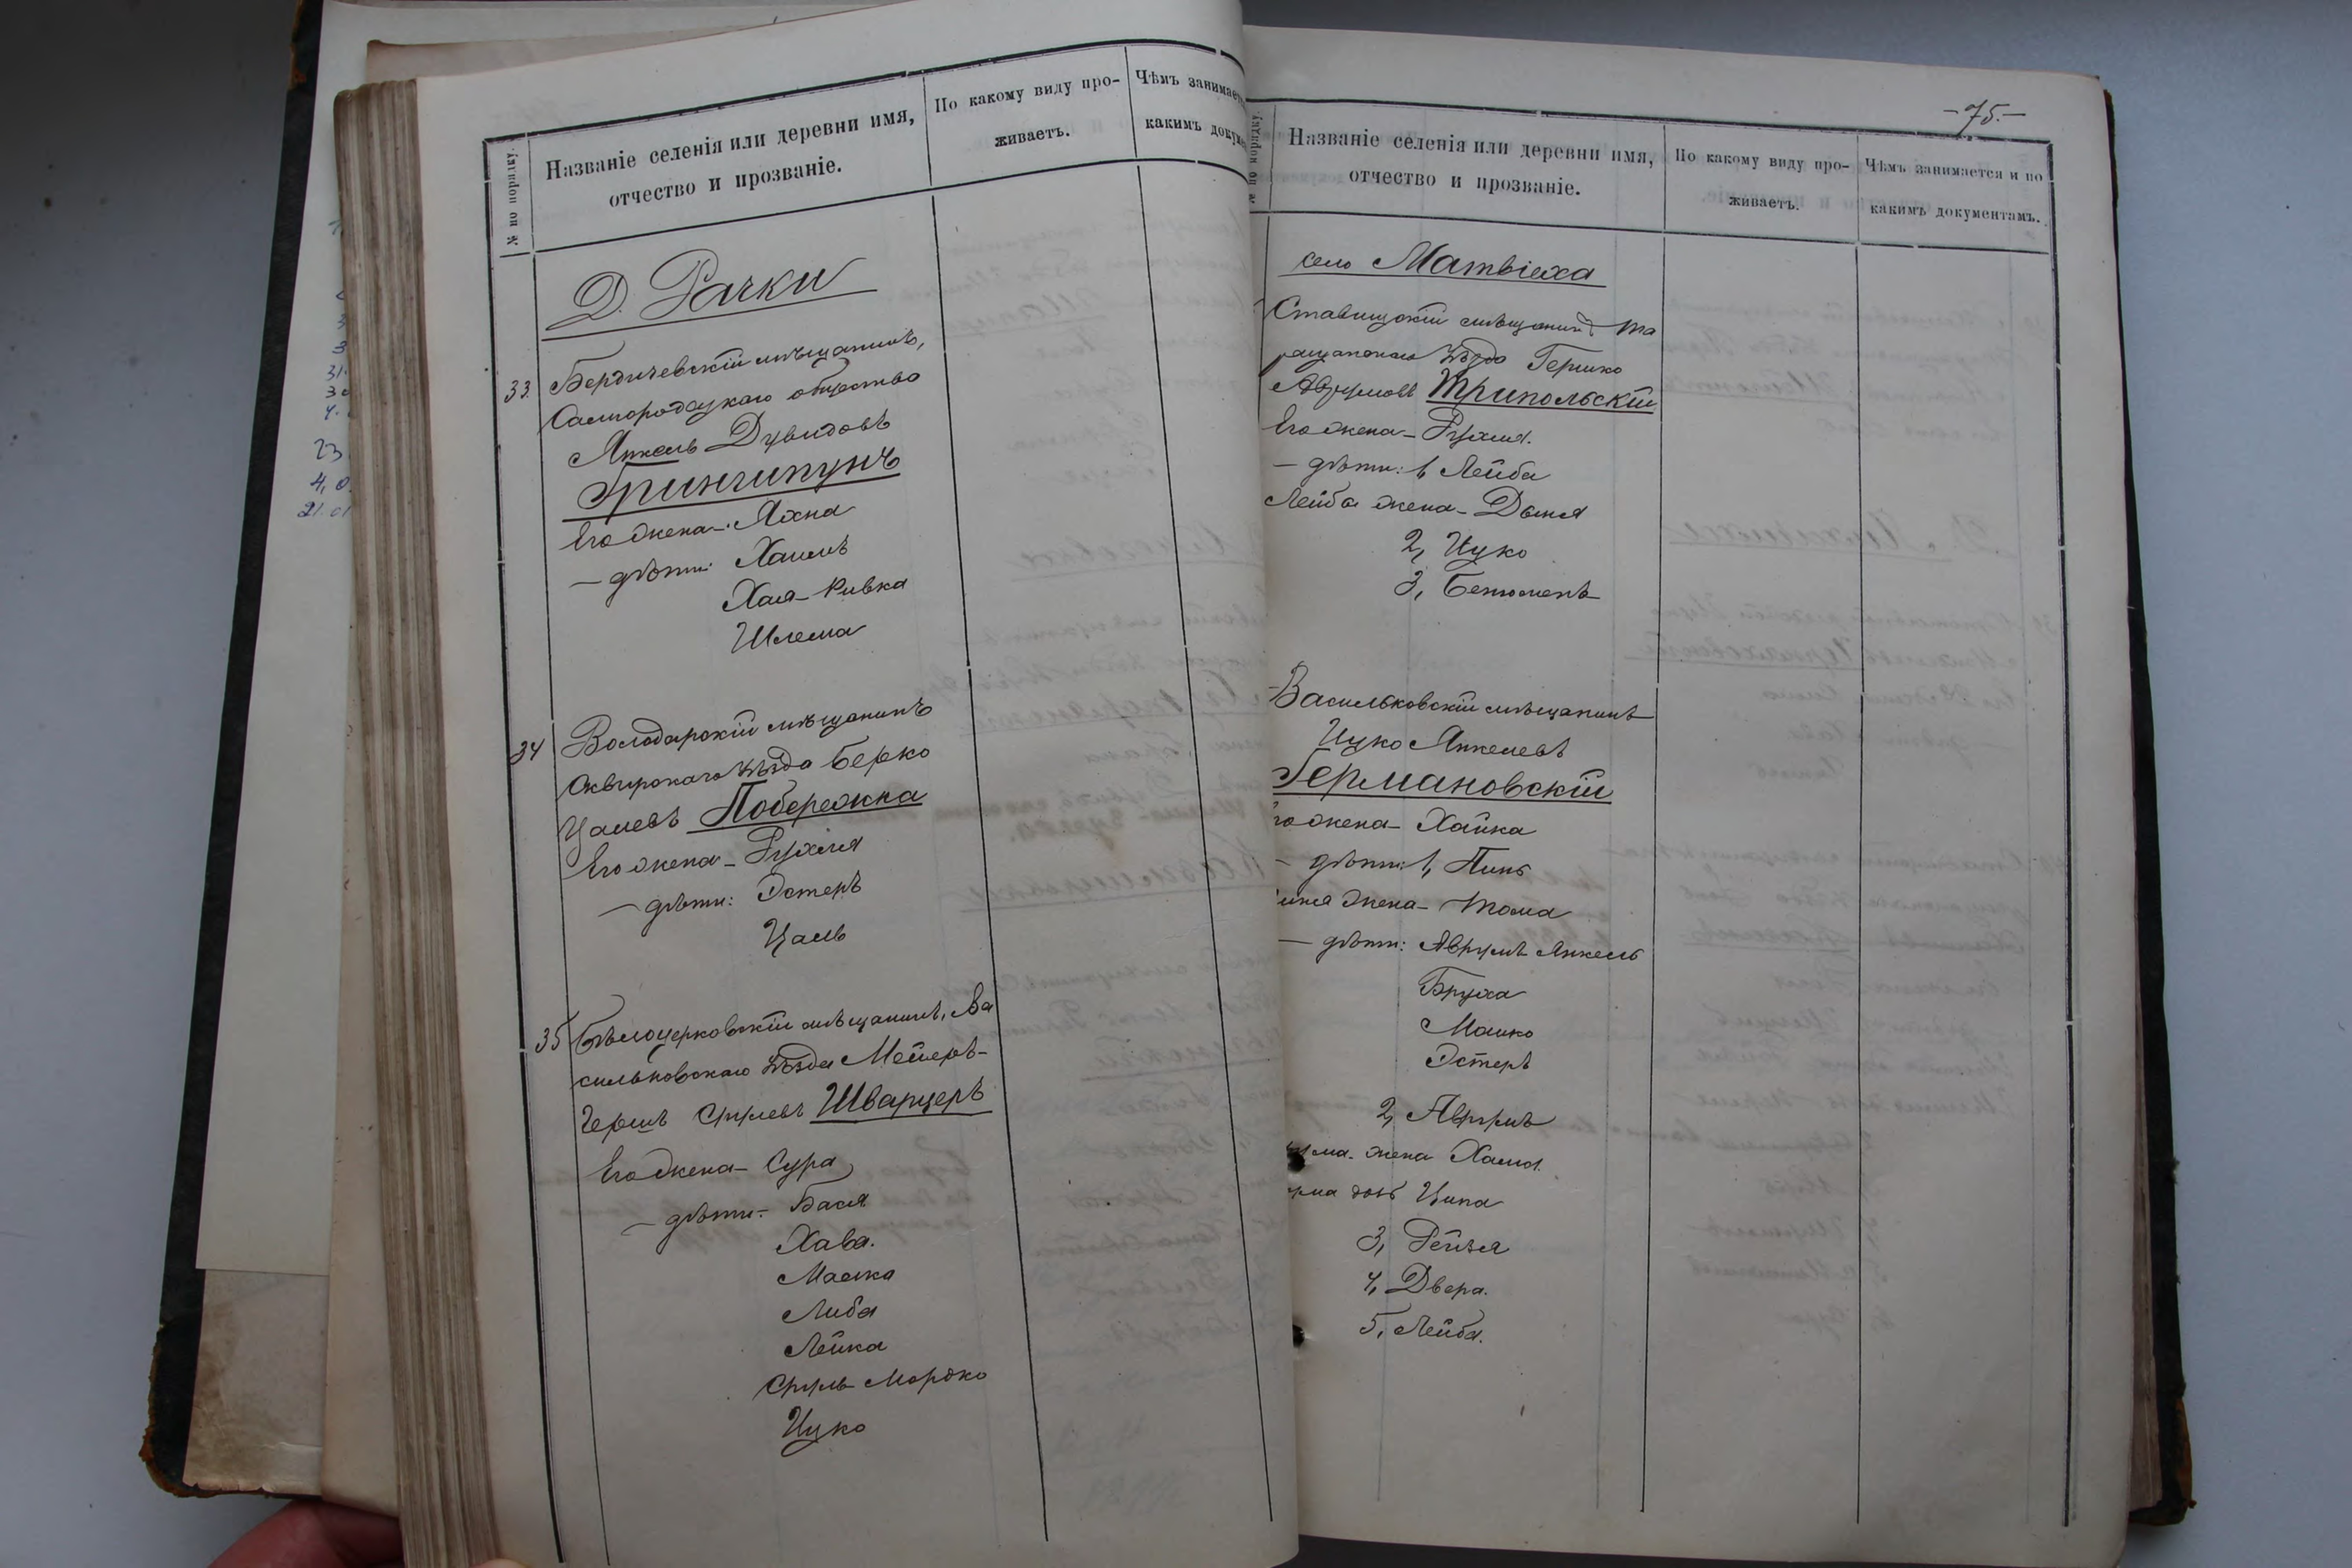 № по порядку.
Названіе селенія или деревни имя,
отчество и прозваніе.
По какому виду про-
живаетъ.
Чѣмъ занимает
какимъ докуме
Д. Рачки
33. Бердичевскій мѣщанинъ,
Самгородецкаго общества
Янкель Дувидовъ
Гринчипунъ
Его жена - Яхна
— дѣти: Хаимъ
Хая-Ривка
Шлема
34 Володарскій мѣщанинъ
Сквирскаго уѣзда Берко
Цалевъ Побережна
Его жена - Рухля
— дѣти: Эстеръ
Цаль
35 Бѣлоцерковскій мѣщанинъ, Ва
сильковскаго уѣзда Мейеръ-
Гершъ Срулевъ Шварцеръ
Его жена - Сура
— дѣти: Бася
Хава.
Малка
Либа
Лейка
Сруль Мордко
Ицко
- 75. -
№ по порядку.
Названіе селенія или деревни имя,
отчество и прозваніе.
По какому виду про-
живаетъ.
Чѣмъ занимается и по
какимъ документамъ.
село Матвіиха
Ставищскій мѣщанинъ Та
ращанскаго уѣзда Гершко
Аврумовъ Трипольскій
Его жена - Рухля.
— дѣти: 1, Лейба
Лейба жена - Двыня
2, Ицко
3, Бенюменъ
Васильковскій мѣщанинъ
Ицко Янкелевъ
Германовскій
го жена - Хайка
— дѣти: 1, Пинь
иня жена - Тома
— дѣти: Аврумъ Янкель
Бруха
Машко
Эстеръ
2, Аврумъ
ума жена Ханя.
ума дочь Ципа
3, Рейзя
4, Двера.
5, Лейба.